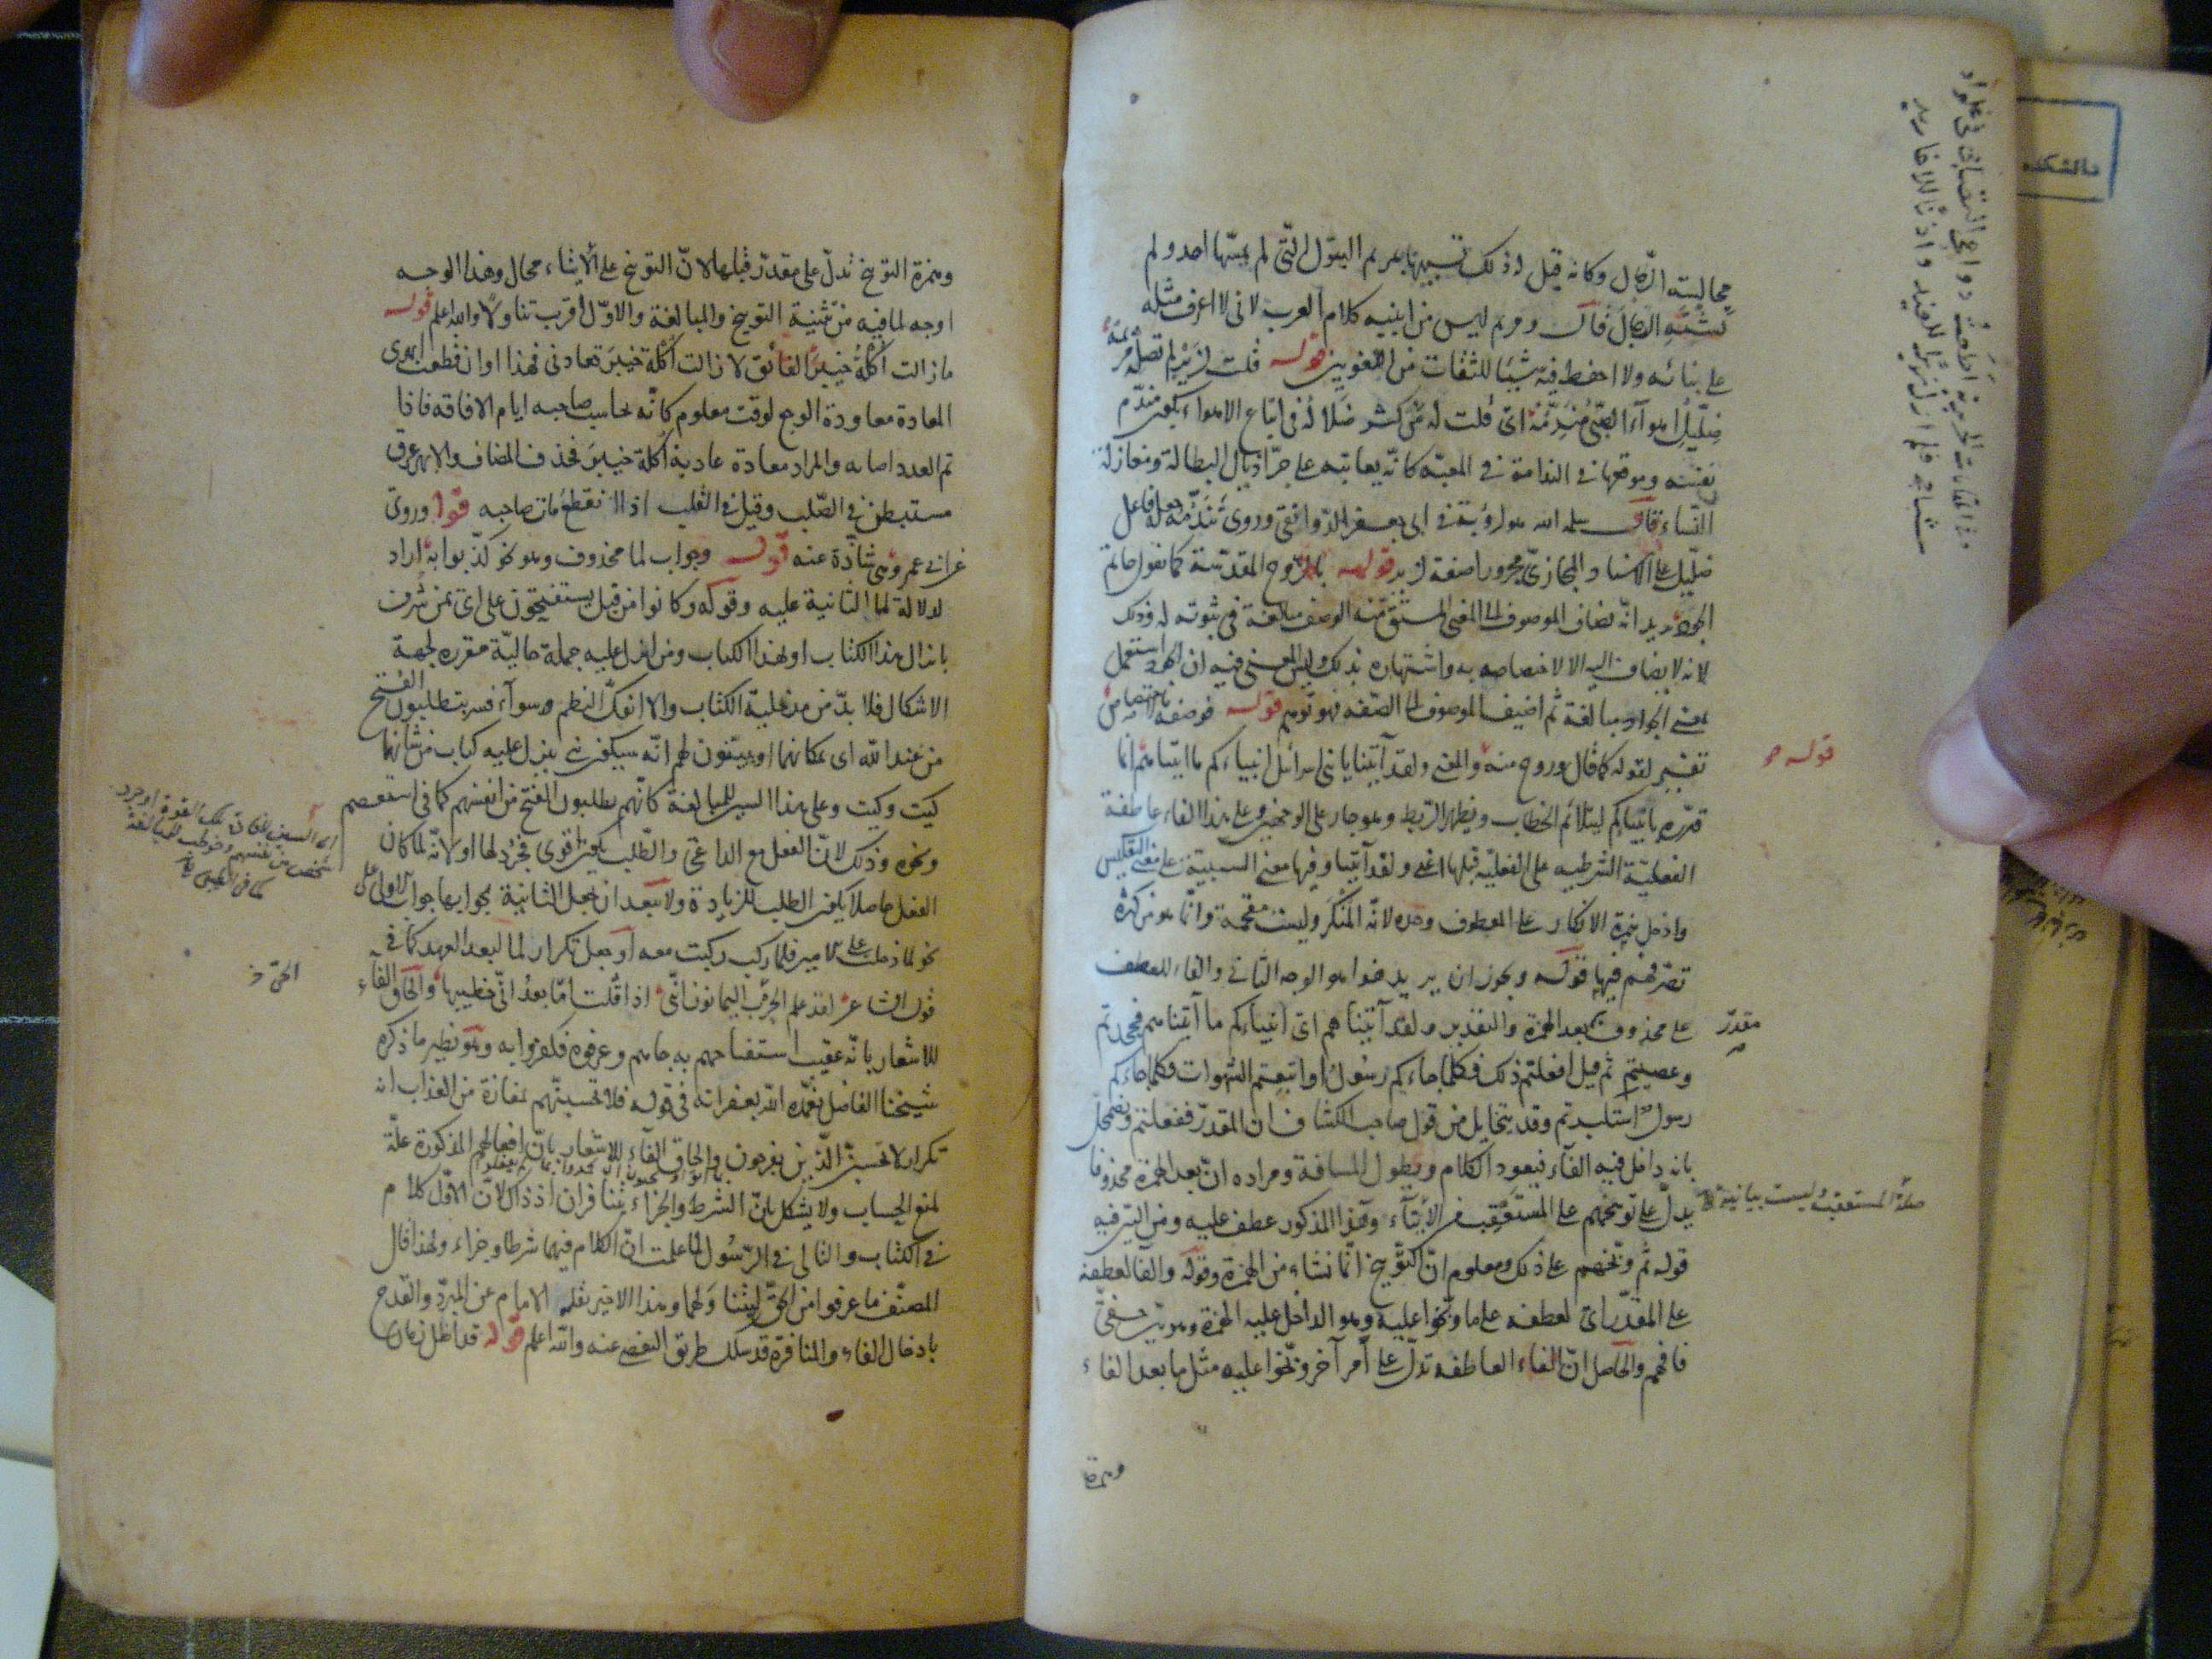 مجالسته الرجال وكانه قيل اذ لك تشبيها بمريم البتول التي لم يمسها احد ولم
تشتبه الرجال قال ومريم ليس من ابنية كلام العرب لاني لا اعرف مثله
على بنائه ولا احفظ فيه شيئا للثقات من اللغويين قوله قلت لزير لم تصله مريمه
ضليل اهواء الصبى مندمه اى قلت له من كثر ضلاله في اتباع الاهواء يكفي مندم
نفسه وموقعها في الندامة في المحبة كانه يعاتبه على جر اذيال البطالة ومغازلة
النساء قال سلمه الله هو لرؤبة في ابي جعفر الدوانقي وروى تندمه جعله فاعل
ضليل على الاسناد المجازي مجرور اصفة لزير قوله بالروح المقدسة كما تقول حاتم
الجود يريد انه يضاف الموصوف الى المعنى المشتق منه الوصف مبالغة في ثبوته له وذلك
لانه لا يضاف اليه الا لاختصاصه به واشتهاره بذلك وليس المعنى فيه ان الجود استعمل
بمعنى الجواد مبالغة ثم اضيف الموصوف الى الصفة فهو توهم قوله فوصفه بالاختصاص
تفسير لقوله كما قال وروح منه والمعنى ولقد آتينا يا بني اسرائيل انبياءكم ما آتيناهم انما
قدره بانبيائكم ليتلائم الخطاب ويظهر الربط وهو جار على الوجهين وعلى هذا الفاء عاطفة
الفعلية الشرطية على الفعلية قبلها اعني ولقد آتينا وفيها معنى السببية على معنى التعكيس
وادخل همزة الانكار على المعطوف وحده لانه المنكر وليست مقحمة وانما هو من كثرة
تصرفهم فيها قوله ويجوز ان يريد هذا هو الوجه الثاني والفاء للعطف
على محذوف بعد الهمزة والتقدير ولقد آتيناهم اى انبياءكم ما آتيناهم فجحدتم
وعصيتم ثم قيل افعلتم ذلك فكلما جاءكم رسول او اتبعتم الشهوات فكلما جاءكم
رسول استكبرتم وقد يتخايل من قول صاحب الكشاف ان المقدر ففعلتم ويضمحل
بانه داخل فيه الفاء فيعود الكلام ويطول المسافة ومراده ان بعد الهمزة محذوفا
يدل على توبيخهم على المستعقب من الايتاء وهذا المذكور عطف عليه ومن البين فيه
قوله ثم وبخهم على ذلك ومعلوم ان التوبيخ انما نشاء من الهمزة وقوله والفا لعطفه
على المقدر اى لعطفه على ما وبخوا عليه وهو الداخل عليه الهمزة وهو بين خفي
فافهم والحاصل ان الفاء العاطفه تدل على أمر آخر وبخوا عليه مثل ما بعد الفاء
وهمزة
قوله
مقدر
صلة المستعقب وليست بيانية
وهمزة التوبيخ تدل على مقدر قبلها لان التوبيخ على الايتاء محال وهذا الوجه
اوجه لما فيه من تثنية التوبيخ والمبالغة والاول اقرب تناولا والله اعلم قوله
ما زالت أكلة خيبر الفائق لا زالت أكلة خيبر تعادني فهذا اوان قطعت ابهرى
المعادة معاودة الوجع لوقت معلوم كانه يحاسب صاحبه ايام الافاقه فاذا
تم العدد اصابه والمراد معادة عادية أكلة خيبر فحذف المضاف والابهر عرق
مستبطن في الصلب وقيل في القلب اذا انقطع مات صاحبه قوله وروى
عن ابي عمرو هي شاذة عنه قوله وجواب لما محذوف وهو نحو كذبوا به اراد
لدلالة لما الثانية عليه وقوله وكانوا من قبل يستفتحون على اى بمن شرف
بانزال هذا الكتاب او لهذا الكتاب ومن انزل عليه جملة حالية مقررة لجهة
الاشكال فلا بد من مدخلية الكتاب والا انفك النظم وسوآء فسر بتطلبون الفتح
من عند الله اى بمكانهما او يبينون لهم انه سيكون نبي ينزل عليه كتاب من شانهما
كيت وكيت وعلى هذا السين للمبالغة كانهم يطلبون الفتح من انفسهم كما في استعصم
ونحوه وذلك لان الفعل مع الداعي والطلب يكون اقوى فجرد لها او لانه لما كان
الفعل حاصلا يكون الطلب للزيادة ولا يبعد ان يجعل الثانية بجوابها جواب الاولى على
نحو لما دخلت على الامير فلما ركب ركبت معه او جعل تكرار لما لبعد العهد كما في
قول الشاعر لقد علم الحي اليمانون انني اذا قلت اما بعد اني خطيبها والحاق الفاء
للاشعار بانه عقيب استفتاحهم به جاءهم وعرفوه فكفروا به وهو نظير ما ذكره
شيخنا الفاضل تغمده الله بغفرانه في قوله فلا تحسبنهم بمفازة من العذاب انه
تكرار لا تحسبن الذين يفرحون والحاق الفاء للاشعار بان افعالهم المذكورة علة
بما اتوا ويحبون ان يحمدوا بما لم يفعلوا
لمنع الحسبان ولا يشكل بان الشرط والجزاء يتنافران اذ ذاك لان الاول كلام
في الكتاب والثاني في الرسول لما علمت ان الكلام فيهما شرطا وجزاء ولهذا قال
المصنف ما عرفوا من الحق ليتناولهما وهذا الاخير نقله الامام عن المبرد والقدح
بادخال الفاء والمنافرة قد سلك طريق التفصي عنه والله اعلم قوله
الحي